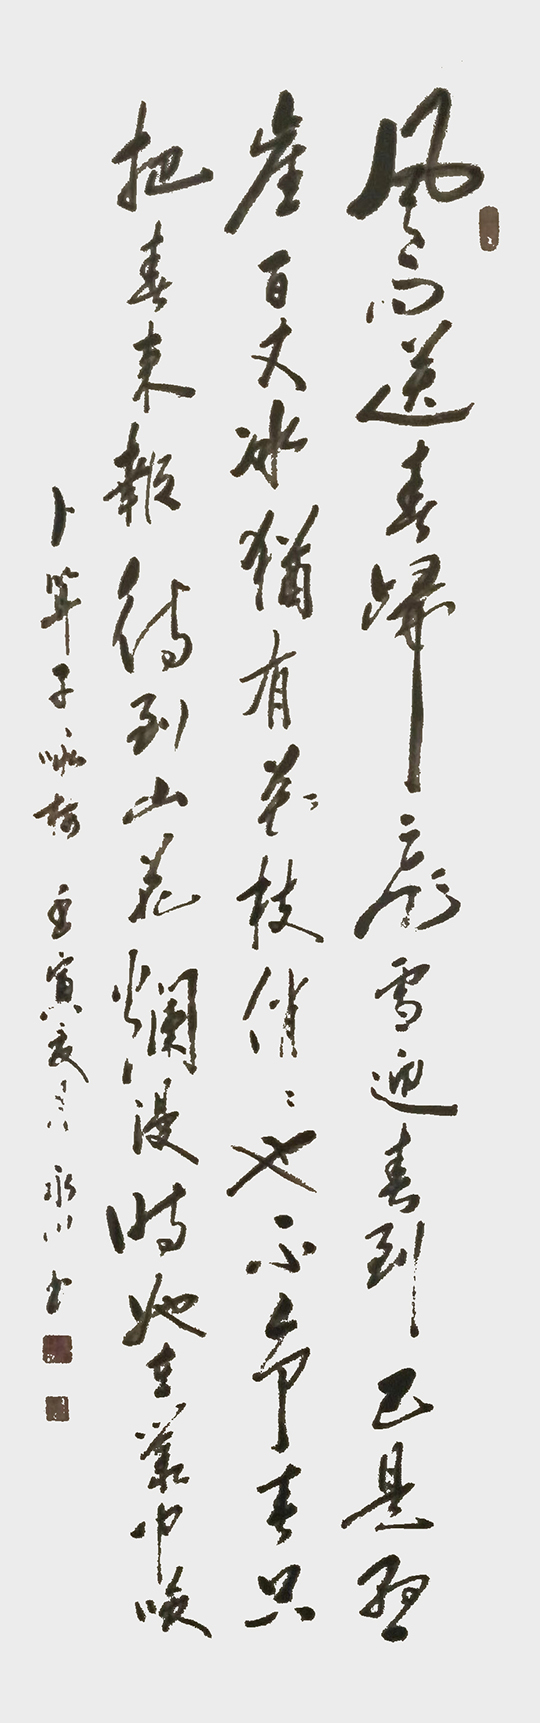 風雨送春歸飛雪迎春到已是懸
崖百丈冰猶有花枝俏〻也不争春只
把春來報待到山花爛漫時她在叢中咲
卜算子咏梅 壬寅夏 永川书